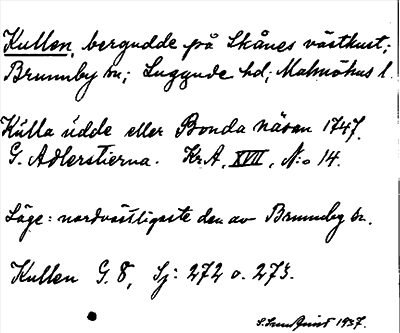 Kullen, bergudde på Skånes västkust;
Brunnby sn; Luggude hd; Malmöhus l.
Kulla udde eller Bonda näsan 1747.
G. Adlerstierna. Kr.A. XVII, N:o 14.
Läge: nordvästligaste den av Brunnby sn.
Kullen G. 8, Sj: 272 o. 273.
1937.